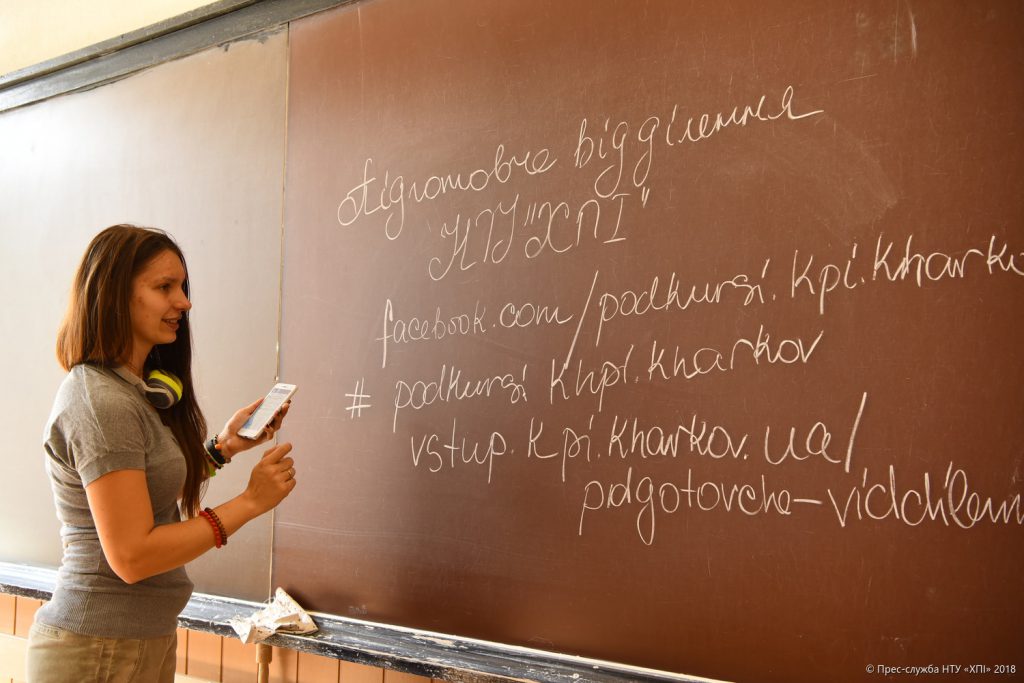 Підготовче відділення
НТУ "ХПІ"
facebook.com/podkursi.kpi.kharko
# podkursi khpi.kharkov
vstup.kpi.kharkov.ua/
pidgotovche-viddilenn
© Прес-служба НТУ «ХПІ» 2018